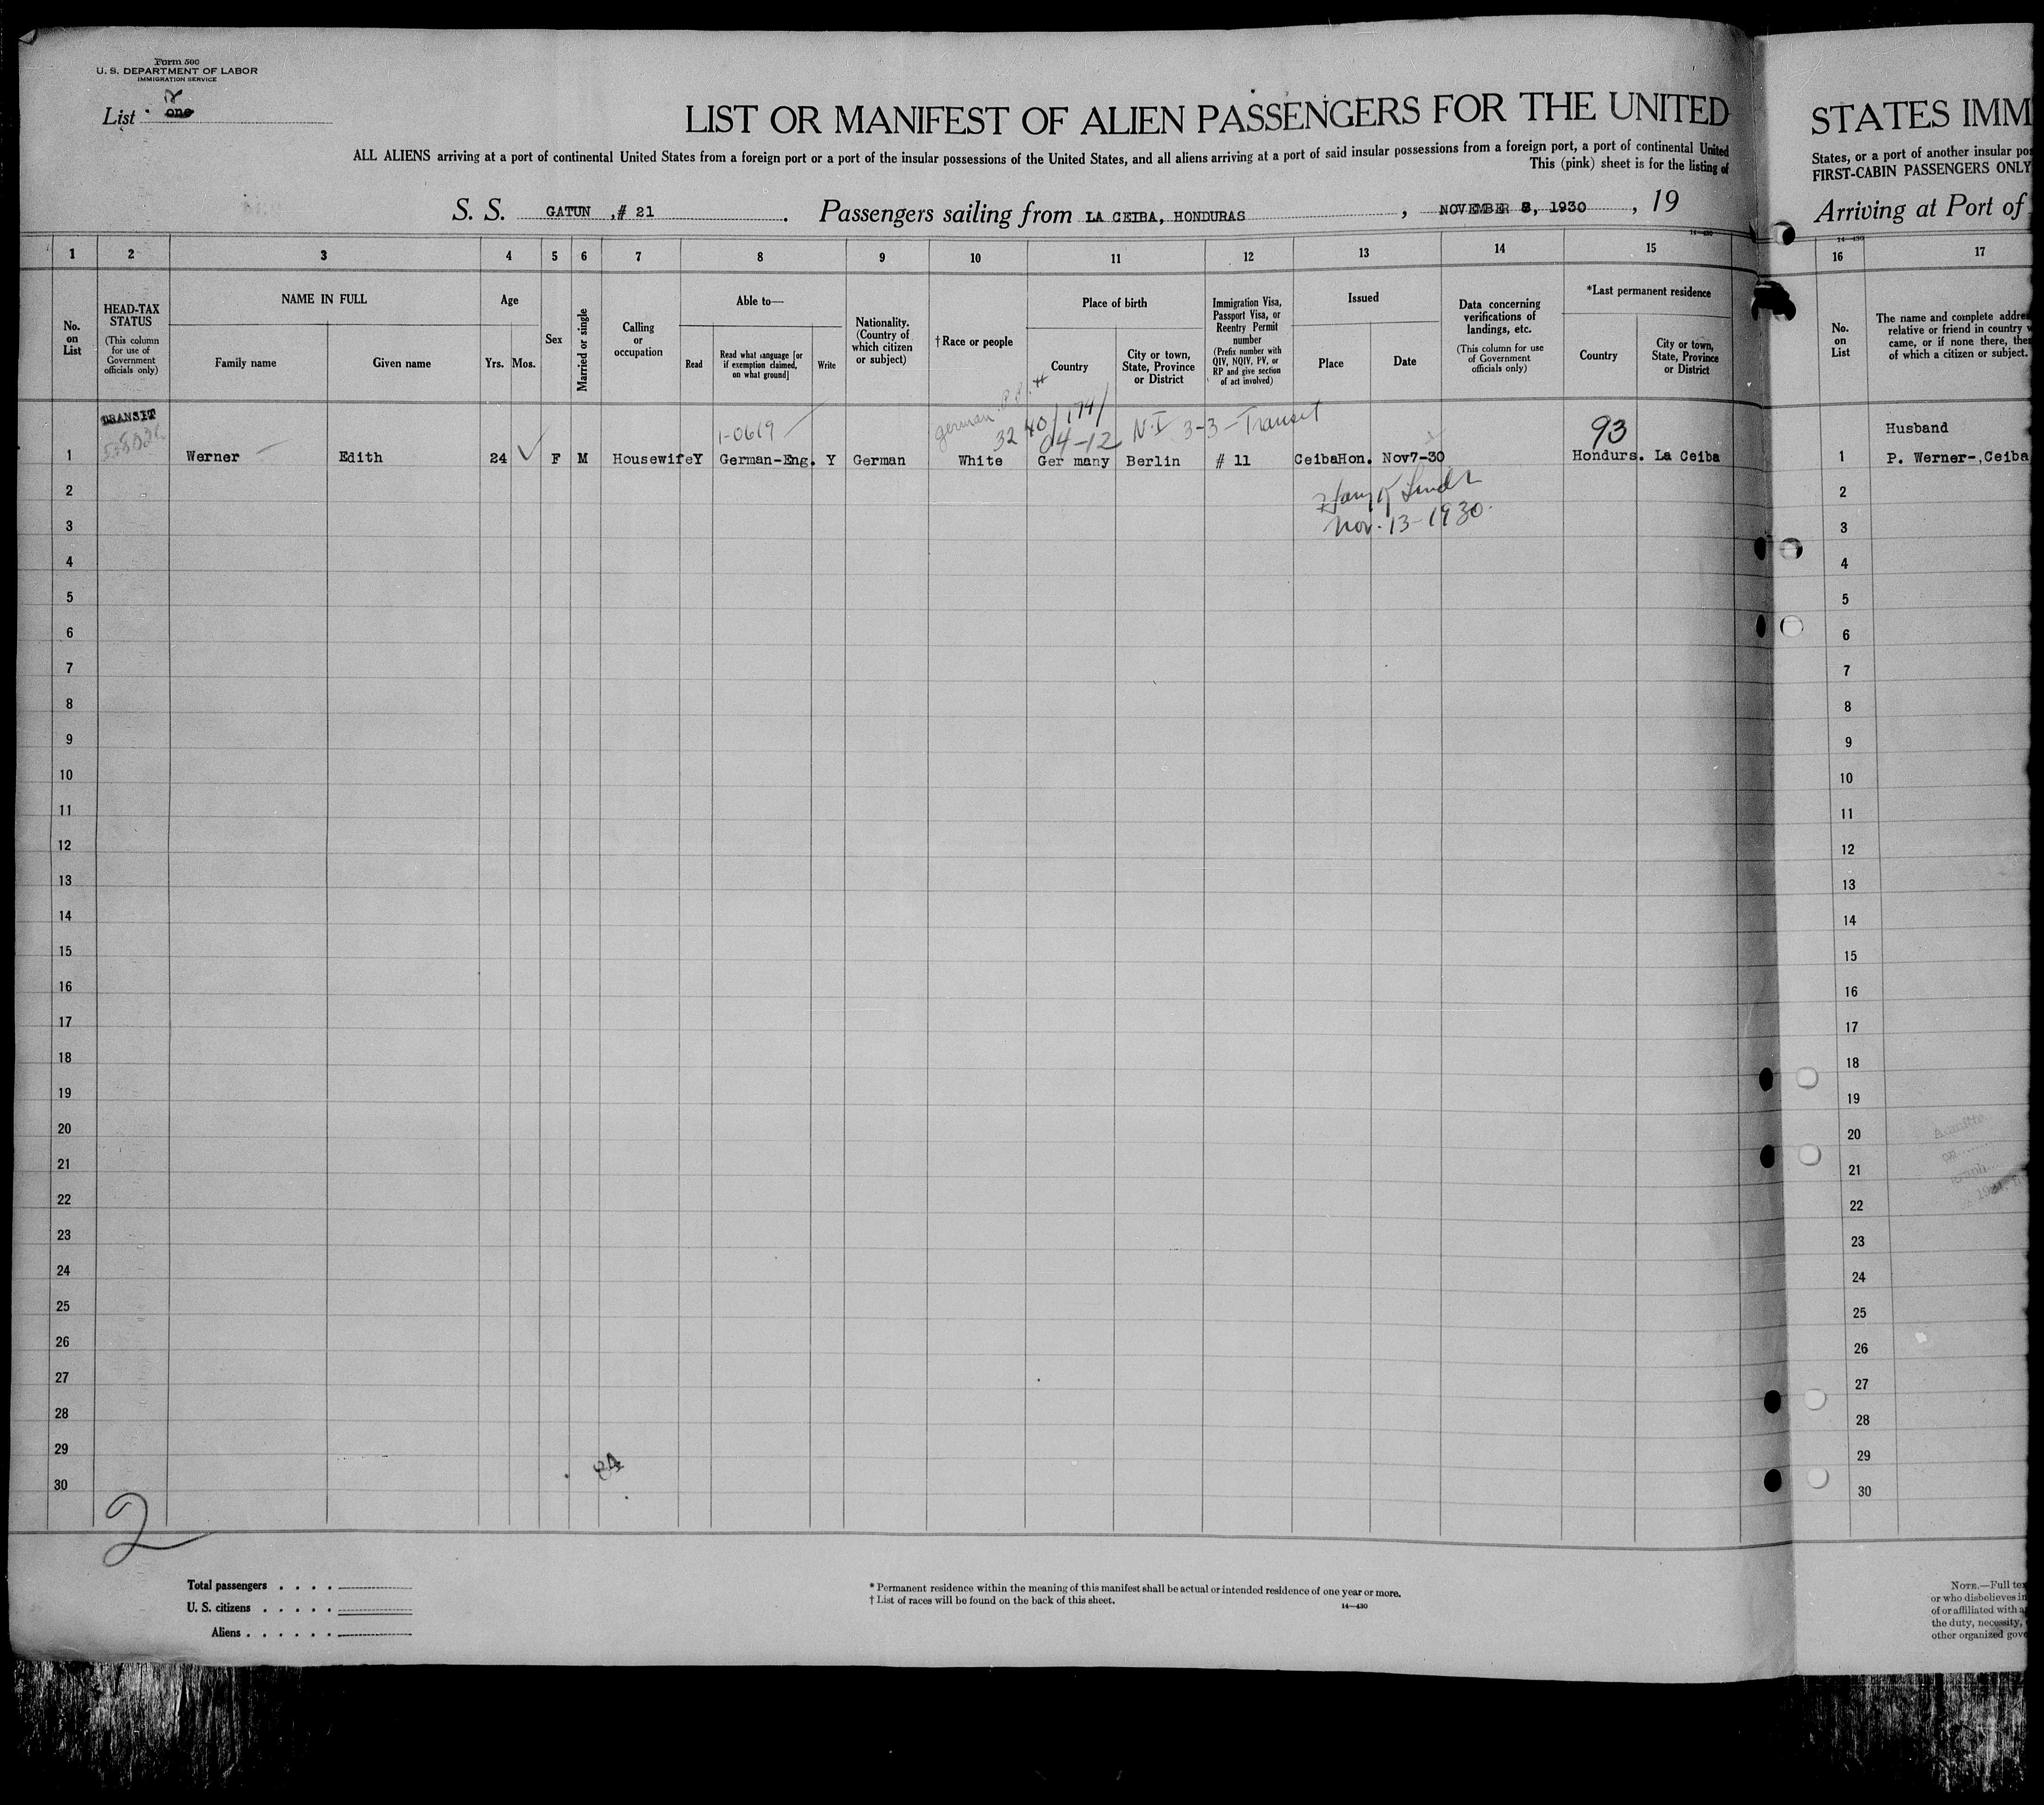 Form 500
U. S. DEPARTMENT OF LABOR
IMMIGRATION SERVICE
List 2 one
LIST OR MANIFEST OF ALIEN PASSENGERS FOR THE UNITED
ALL ALIENS arriving at a port of continental United States from a foreign port or a port of the insular possessions of the United States, and all aliens arriving at a port of said insular possessions from a foreign port, a port of continental United
This (pink) sheet is for the listing of
S. S. GATUN ,# 21 . Passengers sailing from LA CEIBA, HONDURAS , NOVEMBER 8, 1930 , 19
14—430
1 2 3 4 5 6 7 8 9 10 11 12 13 14 15
No. on List
HEAD-TAX STATUS
(This column for use of Government officials only)
NAME IN FULL
Family name
Given name
Age
Yrs. Mos.
Sex
Married or single
Calling or occupation
Able to—
Read
Read what language [or if exemption claimed, on what ground]
Write
Nationality. (Country of which citizen or subject)
†Race or people
Place of birth
Country
City or town, State, Province or District
Immigration Visa, Passport Visa, or Reentry Permit number
(Prefix number with QIV, NQIV, PV, or RP and give section of act involved)
Issued
Place
Date
Data concerning verifications of landings, etc.
(This column for use of Government officials only)
*Last permanent residence
Country
City or town, State, Province or District
TRANSIT
1-0619
german P.P. #
32 40/174/
04-12 N.I 3-3-Transit
93
1 Werner Edith 24 F M Housewife Y German-Eng. Y German White Ger many Berlin # 11 CeibaHon. Nov7-30 Hondurs. La Ceiba
Nov. 13-1930.
2
3
4
5
6
7
8
9
10
11
12
13
14
15
16
17
18
19
20
21
22
23
24
25
26
27
28
29
30
2
Total passengers
U. S. citizens
Aliens
* Permanent residence within the meaning of this manifest shall be actual or intended residence of one year or more.
† List of races will be found on the back of this sheet.
14—430
STATES IMM
States, or a port of another insular pos
FIRST-CABIN PASSENGERS ONLY
Arriving at Port of
14—430
16 17
No. on List
The name and complete addre
relative or friend in country w
came, or if none there, the
of which a citizen or subject.
Husband
1 P. Werner-,Ceiba
2
3
4
5
6
7
8
9
10
11
12
13
14
15
16
17
18
19
20
21
22
23
24
25
26
27
28
29
30
NOTE.—Full tex
or who disbelieves in
of or affiliated with a
the duty, necessity,
other organized gove